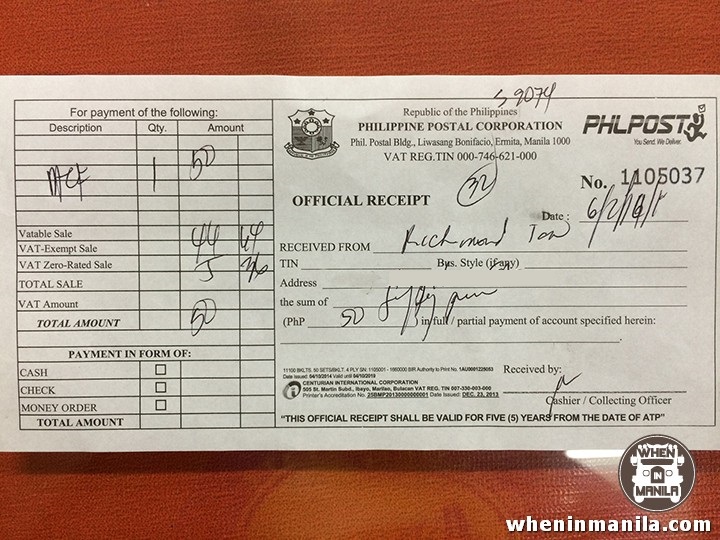 S 9074
For payment of the following:
Description Qty. Amount
MCF 1 50
Vatable Sale 44 64
VAT-Exempt Sale
VAT Zero-Rated Sale 5 36
TOTAL SALE
VAT Amount
TOTAL AMOUNT 50
PAYMENT IN FORM OF:
CASH
CHECK
MONEY ORDER
TOTAL AMOUNT
Republic of the Philippines
PHILIPPINE POSTAL CORPORATION
Phil. Postal Bldg., Liwasang Bonifacio, Ermita, Manila 1000
VAT REG.TIN 000-746-621-000
PHLPOST
You Send. We Deliver.
32
OFFICIAL RECEIPT
No. 1105037
Date :
RECEIVED FROM Richmond Tan
TIN Bus. Style (if any)
Address
the sum of fifty
(PhP 50 ) in full / partial payment of account specified herein:
11100 BKLTS. 50 SETS/BKLT. 4 PLY SN: 1105001 - 1660000 BIR Authority to Print No. 1AU0001225053
Date Issued: 04/10/2014 Valid until 04/10/2019
CENTURIAN INTERNATIONAL CORPORATION
505 St. Martin Subd., Ibayo, Marilao, Bulacan VAT REG. TIN 007-330-003-000
Printer's Accreditation No. 25BMP20130000000001 Date Issued: DEC. 23, 2013
Received by:
Cashier / Collecting Officer
"THIS OFFICIAL RECEIPT SHALL BE VALID FOR FIVE (5) YEARS FROM THE DATE OF ATP"
WHEN
IN
MANILA
wheninmanila.com